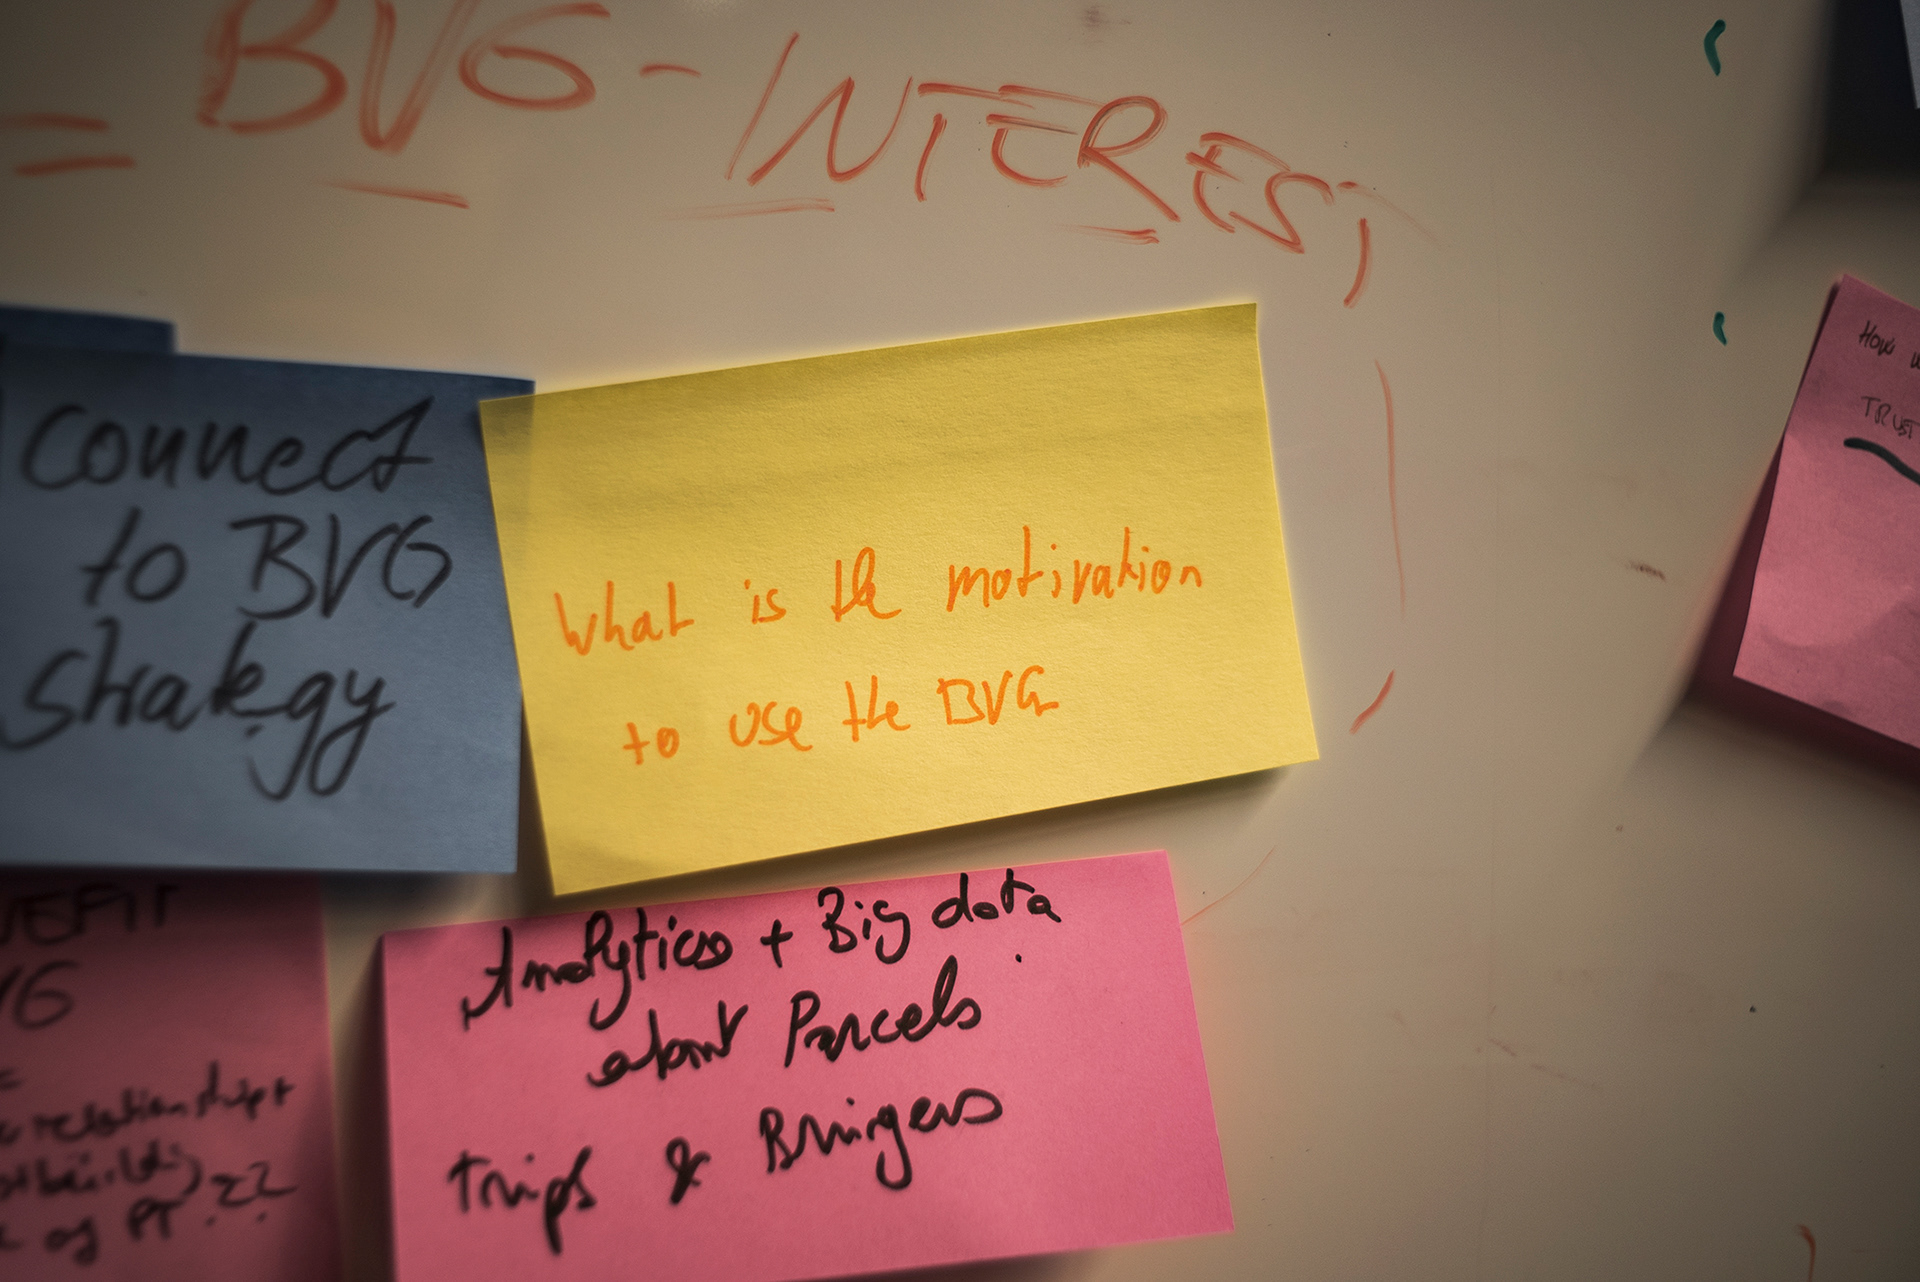 = BVG - INTEREST
Connect
to BVG
strategy
What is the motivation
to use the BVG
Analytics + Big data
about Parcels
trips & Bringers
relationship +
of PT ??
HOW
TRUST